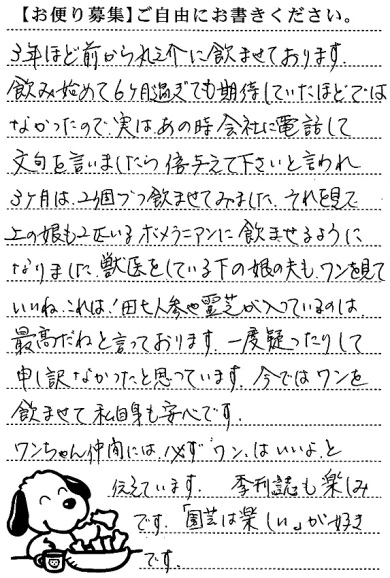 【お便り募集】ご自由にお書きください。
3年ほど前から礼介に飲ませております。
飲み始めて6ヶ月過ぎても期待していたほどでは
なかったので、実は、あの時会社に電話して
文句を言いましたら倍与えて下さいと言われ
3ヶ月は、2個づつ飲ませてみました。それを見て
上の娘も2匹いるポメラニアンに飲ませるように
なりました。獣医をしている下の娘の夫も、ワンを見て
いいね、これは!田七人参や霊芝が入っているのは
最高だねと言っております。一度疑ったりして
申し訳なかったと思っています。今ではワンを
飲ませて私自身も安心です。
ワンちゃん仲間には、必ず"ワン"はいいよ、と
伝えています。 季刊誌も楽しみ
です。「園芸は楽しい」が好き
です。